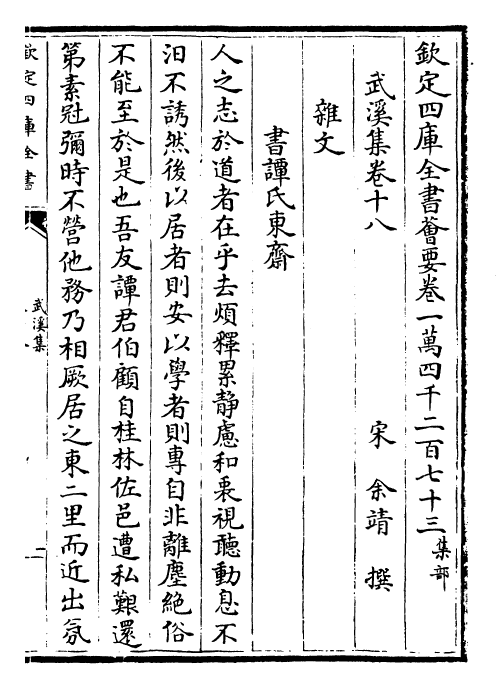 欽定四庫全書薈要卷一萬四千二百七十三集部
武溪集卷十八
宋 余靖 撰
雜文
書譚氏東齋
人之志於道者在乎去煩釋累静慮和衷視聽動息不
汨不誘然後以居者則安以學者則專自非離塵絶俗
不能至於是也吾友譚君伯顧自桂林佐邑遭私艱還
第素冠彌時不營他務乃相厥居之東二里而近出氛
欽定四庫全書
武溪集
二